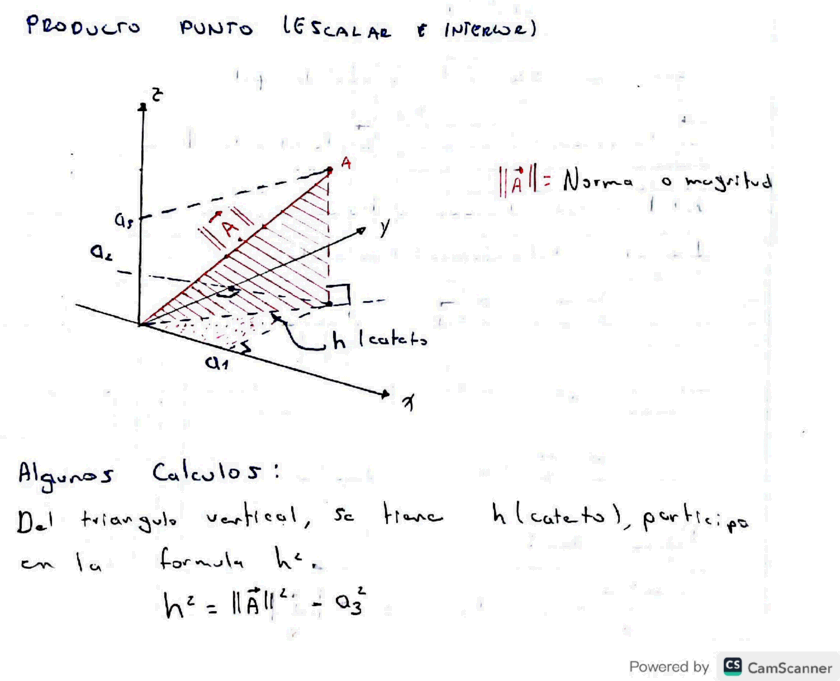 PRODUCTO PUNTO (ESCALAR E INTERIOR)
z
A
||A⃗|| = Norma o magnitud
a₃
||A⃗||
y
a₂
h (cateto
a₁
x
Algunos Calculos:
Del triangulo vertical, se tiene h (cateto), participa
en la formula h².
h² = ||A⃗||² - a₃²
Powered by CS CamScanner